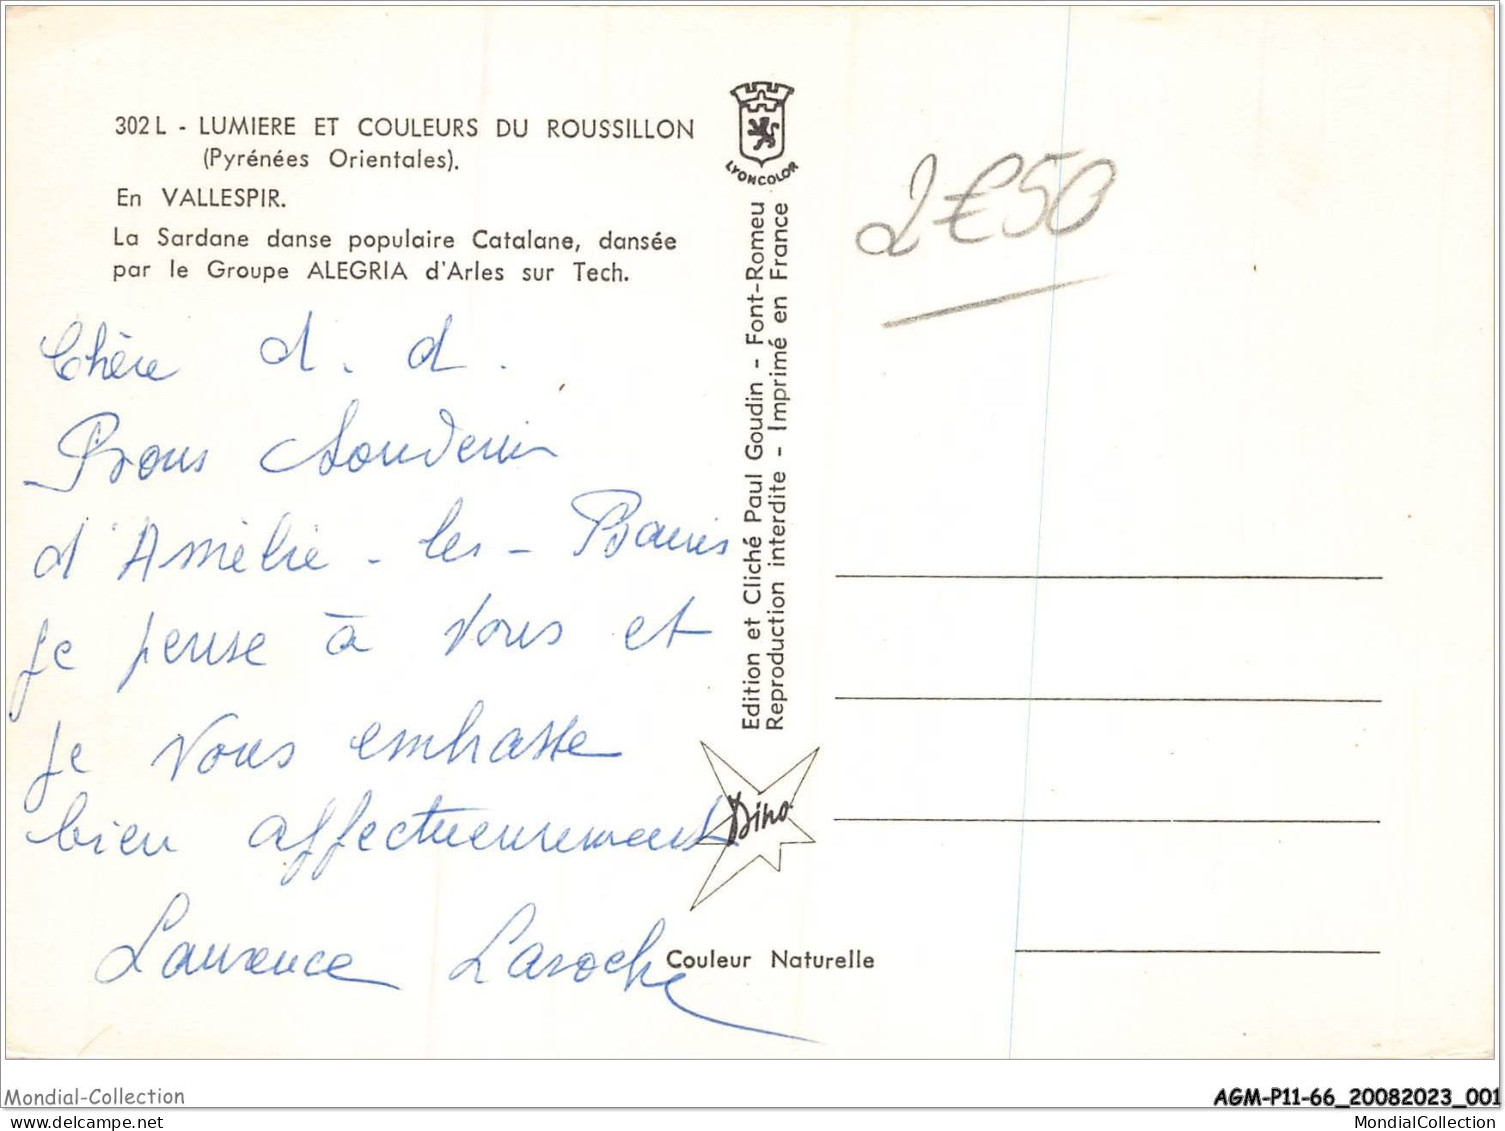 302 L - LUMIERE ET COULEURS DU ROUSSILLON
(Pyrénées Orientales).
En VALLESPIR.
La Sardane danse populaire Catalane, dansée
par le Groupe ALEGRIA d'Arles sur Tech.
Chère d. d.
Bons Souvenirs
d'Amélie-les-Bains
Je pense à vous et
je vous embrasse
bien affectueusement
Laurence Laroche
LYONCOLOR
Edition et Cliché Paul Goudin - Font-Romeu
Reproduction interdite - Imprimé en France
Dino
Couleur Naturelle
2€50
Mondial-Collection
AGM-P11-66_20082023_001
mondial-collection.com
MondialCollection